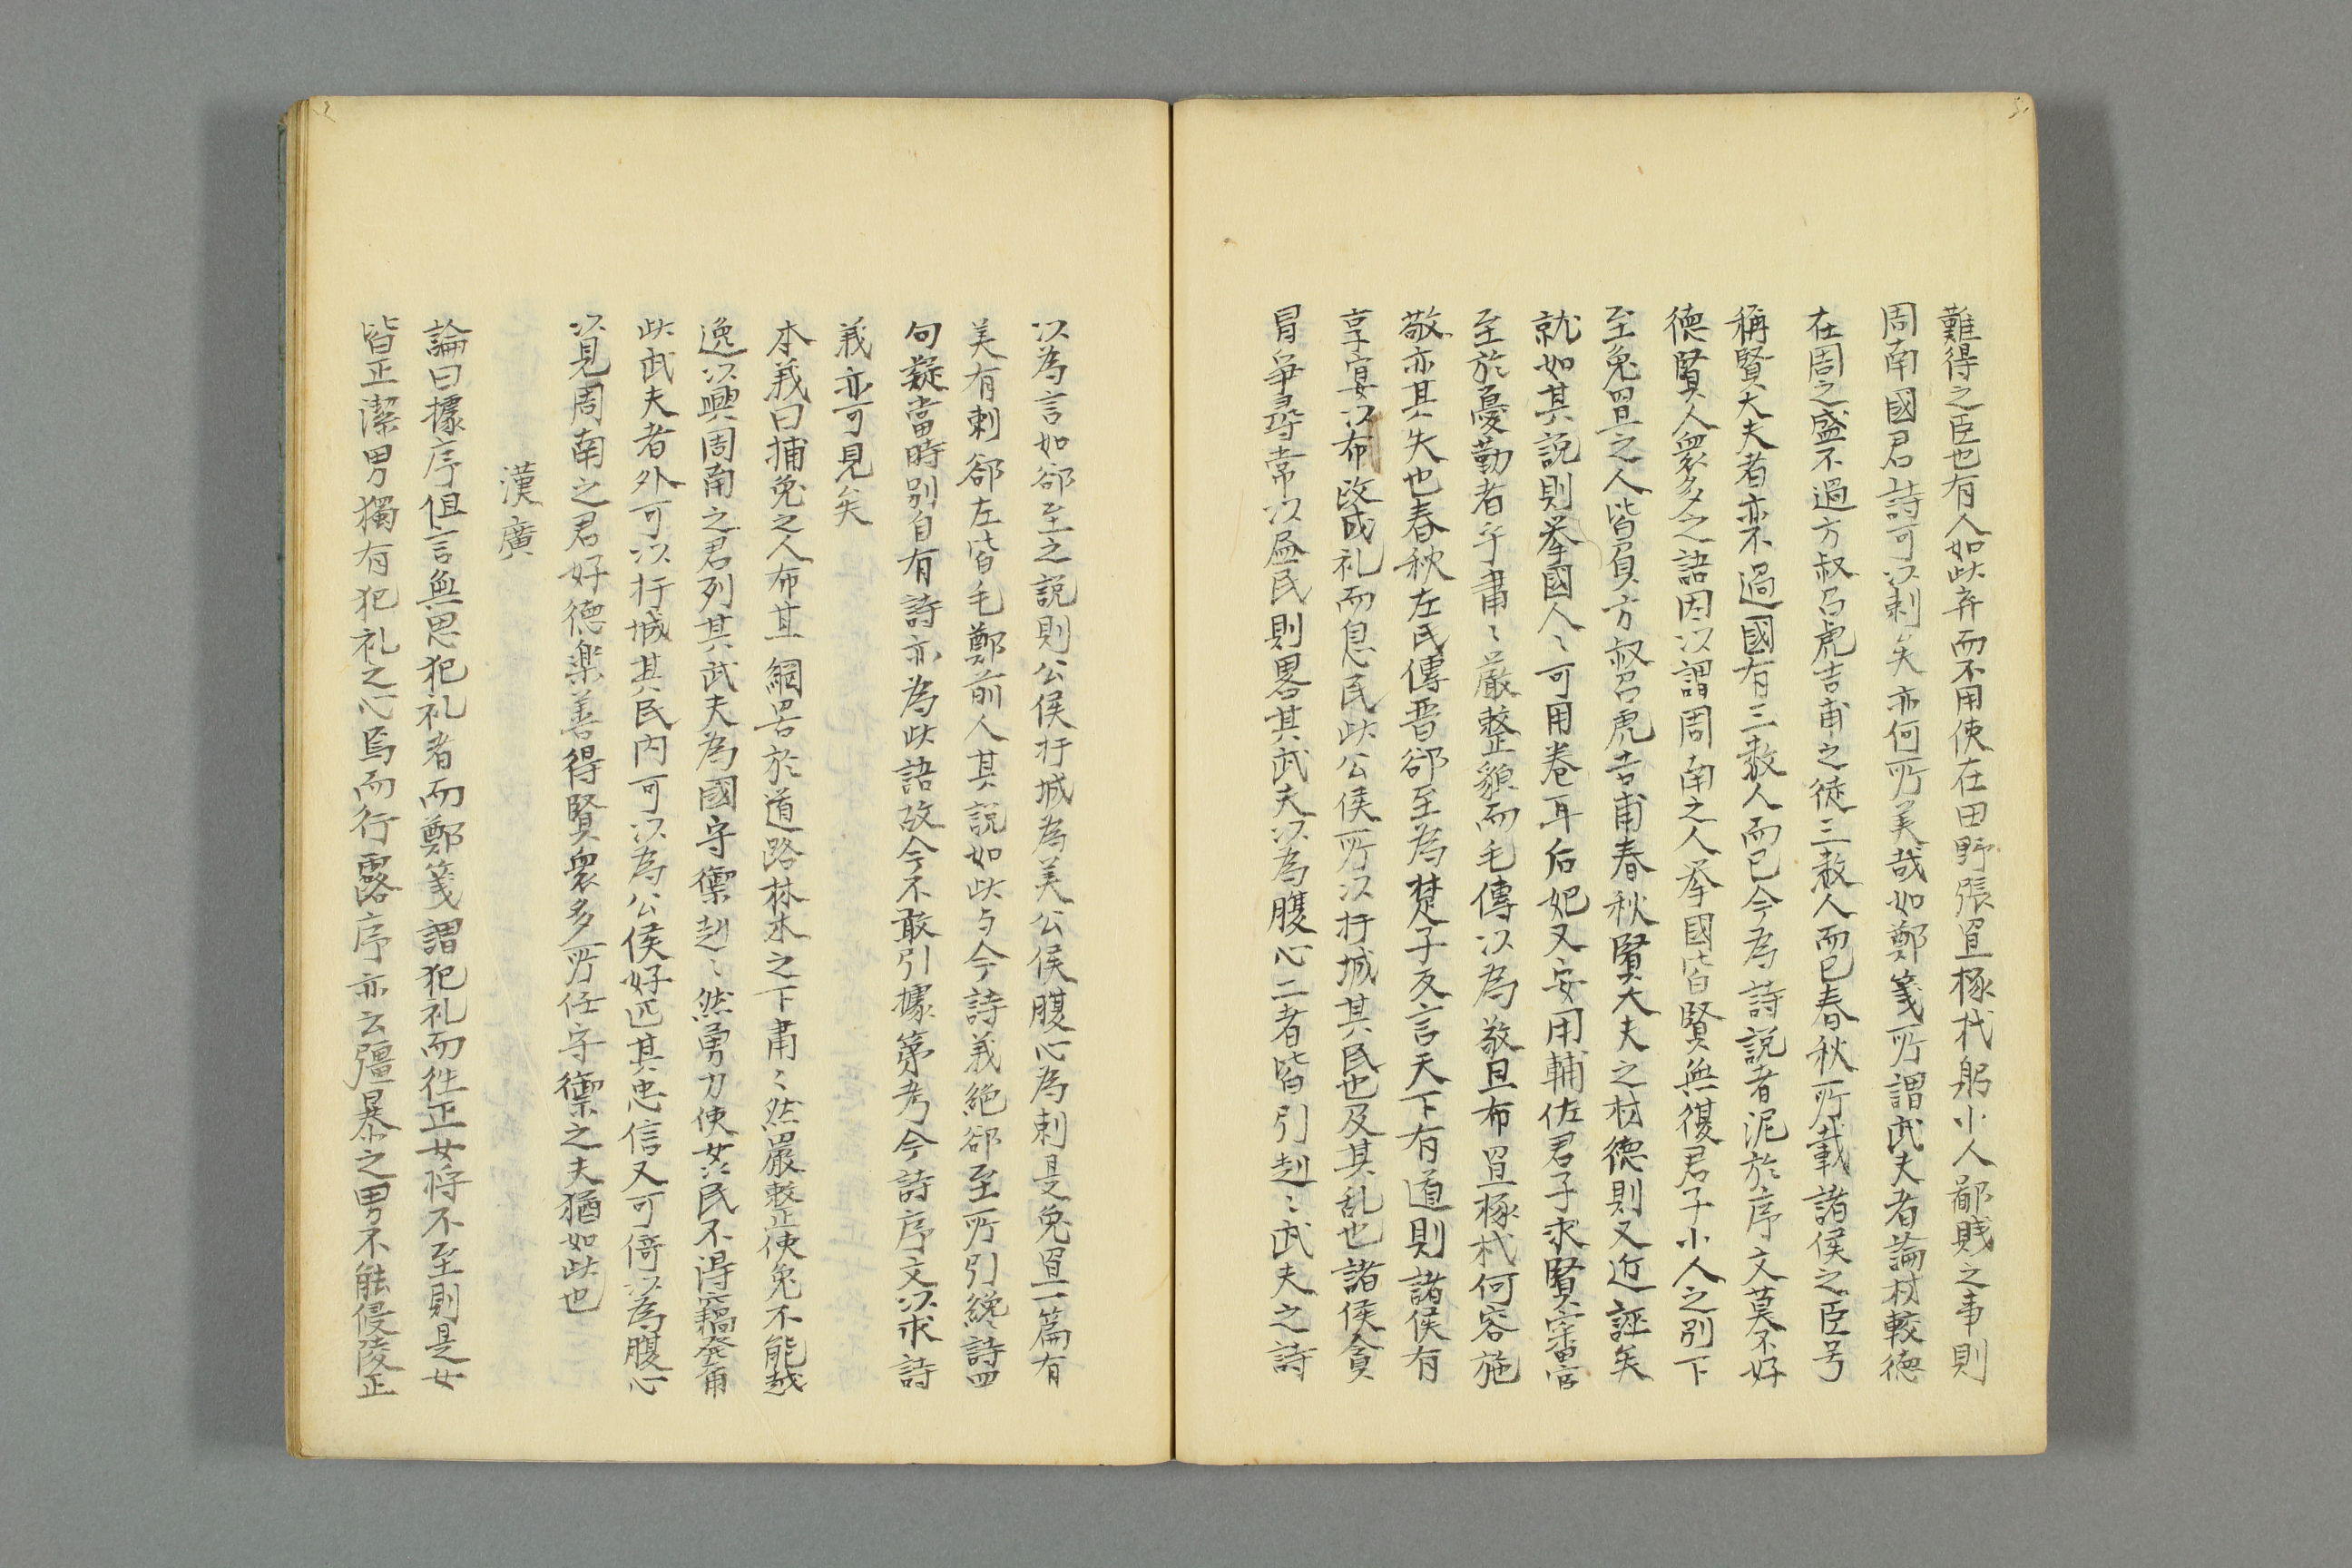 難得之臣也有人如此弃而不用使在田野張罝椓杙躬小人鄙賤之事則
周南國君詩可以刺矣亦何所美哉如鄭箋所謂武夫者論材較德
在周之盛不過方叔召虎吉甫之徒三数人而已春秋所載諸侯之臣号
稱賢大夫者亦不過國有三数人而已今為詩説者泥於序文莫不好
德賢人衆多之語因以謂周南之人举國皆賢無復君子小人之別下
至兔罝之人皆負方叔召虎吉甫春秋賢大夫之材德則又近誣矣
就如其説則举國人〻可用卷耳后妃又安用輔佐君子求賢審官
至於憂勤者乎肅〻嚴整貌而毛傳以為敬且布罝椓杙何容施
敬亦其失也春秋左氏傳晋郤至為楚子反言天下有道則諸侯有
享宴以布政成礼而息民此公侯所以扞城其民也及其乱也諸侯貪
冒争尋常以盡民則畧其武夫以為腹心二者皆引赳〻武夫之詩
以為言如郤至之説則公侯扞城為美公侯腹心為刺是兔罝一篇有
美有刺郤左皆毛鄭前人其説如此与今詩義絶郤至所引纔詩四
句疑當時別自有詩亦為此語故今不敢引據第考今詩序文以求詩
義亦可見矣
本義曰捕兔之人布其網罟於道路林木之下肅〻然嚴整使兔不能越
逸以興周南之君列其武夫為國守禦赳〻然勇力使奸民不得竊發爾
此武夫者外可以扞城其民内可以為公侯好匹其忠信又可倚以為腹心
以見周南之君好德樂善得賢衆多所任守禦之夫猶如此也
漢廣
論曰據序但言無思犯礼者而鄭箋謂犯礼而往正女將不至則是女
皆正潔男獨有犯礼之心焉而行露序亦云彊暴之男不能侵陵正